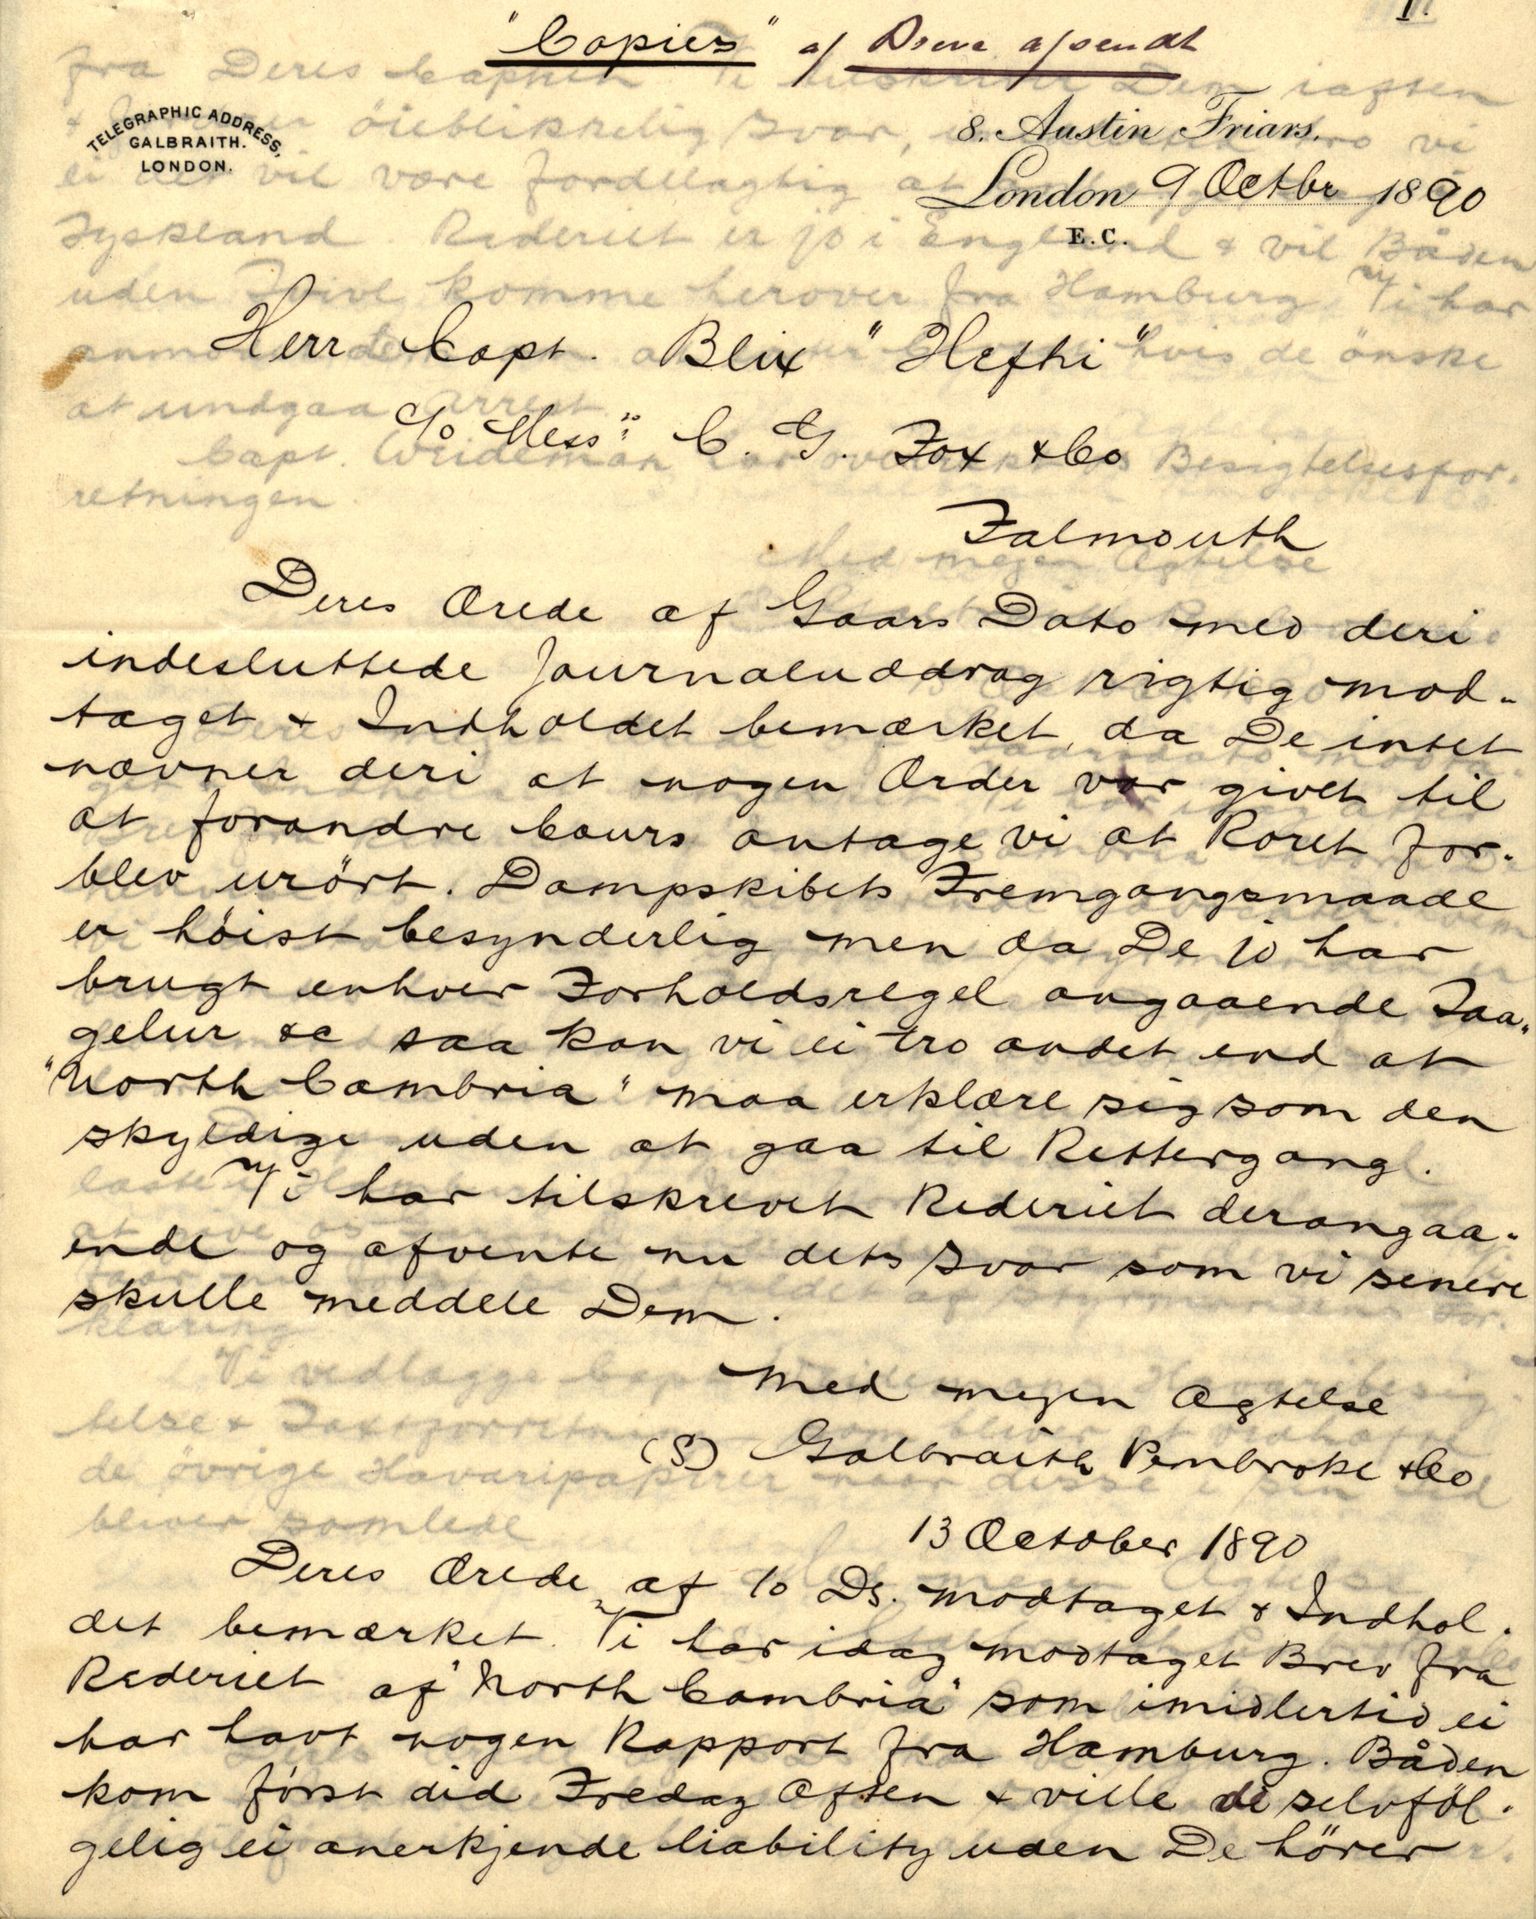 1.
"Copies" af Breve afsendt
TELEGRAPHIC ADDRESS,
GALBRAITH.
LONDON.
8. Austin Friars.
London 9 Octbr 1890
E.C.
Herr Capt. Blix "Hefhi"
C/o Mess:rs C. G. Fox & Co
Falmouth
Deres Ærede af Gaars Dato med deri
indesluttede Journaluddrag rigtig mod-
taget & Indholdet bemærket, da De intet
nævner deri at nogen Order var givet til
at forandre Cours antage vi at Roret for-
blev urört. Dampskibets Fremgangsmaade
er höist besynderlig men da De jo har
brugt enhver Forholdsregel angaaende Taa-
gelur &c saa kan vi ei tro andet end at
"North Cambria" maa erklære sig som den
skyldige uden at gaa til Rettergang.
Vi har tilskrevet Rederiet derangaa-
ende og afvente nu dets Svar som vi senere
skulle meddele Dem.
Med megen Agtelse
(S) Galbraith Pembroke & Co
13 October 1890
Deres Ærede af 10 Ds. modtaget & Indhol-
det bemærket. Vi har idag modtaget Brev fra
Rederiet af "North Cambria" som imidlertid ei
har havt nogen Rapport fra Hamburg. Båden
kom först did Fredag Aften & ville de selvföl-
gelig ei anerkjende liability uden De hörer